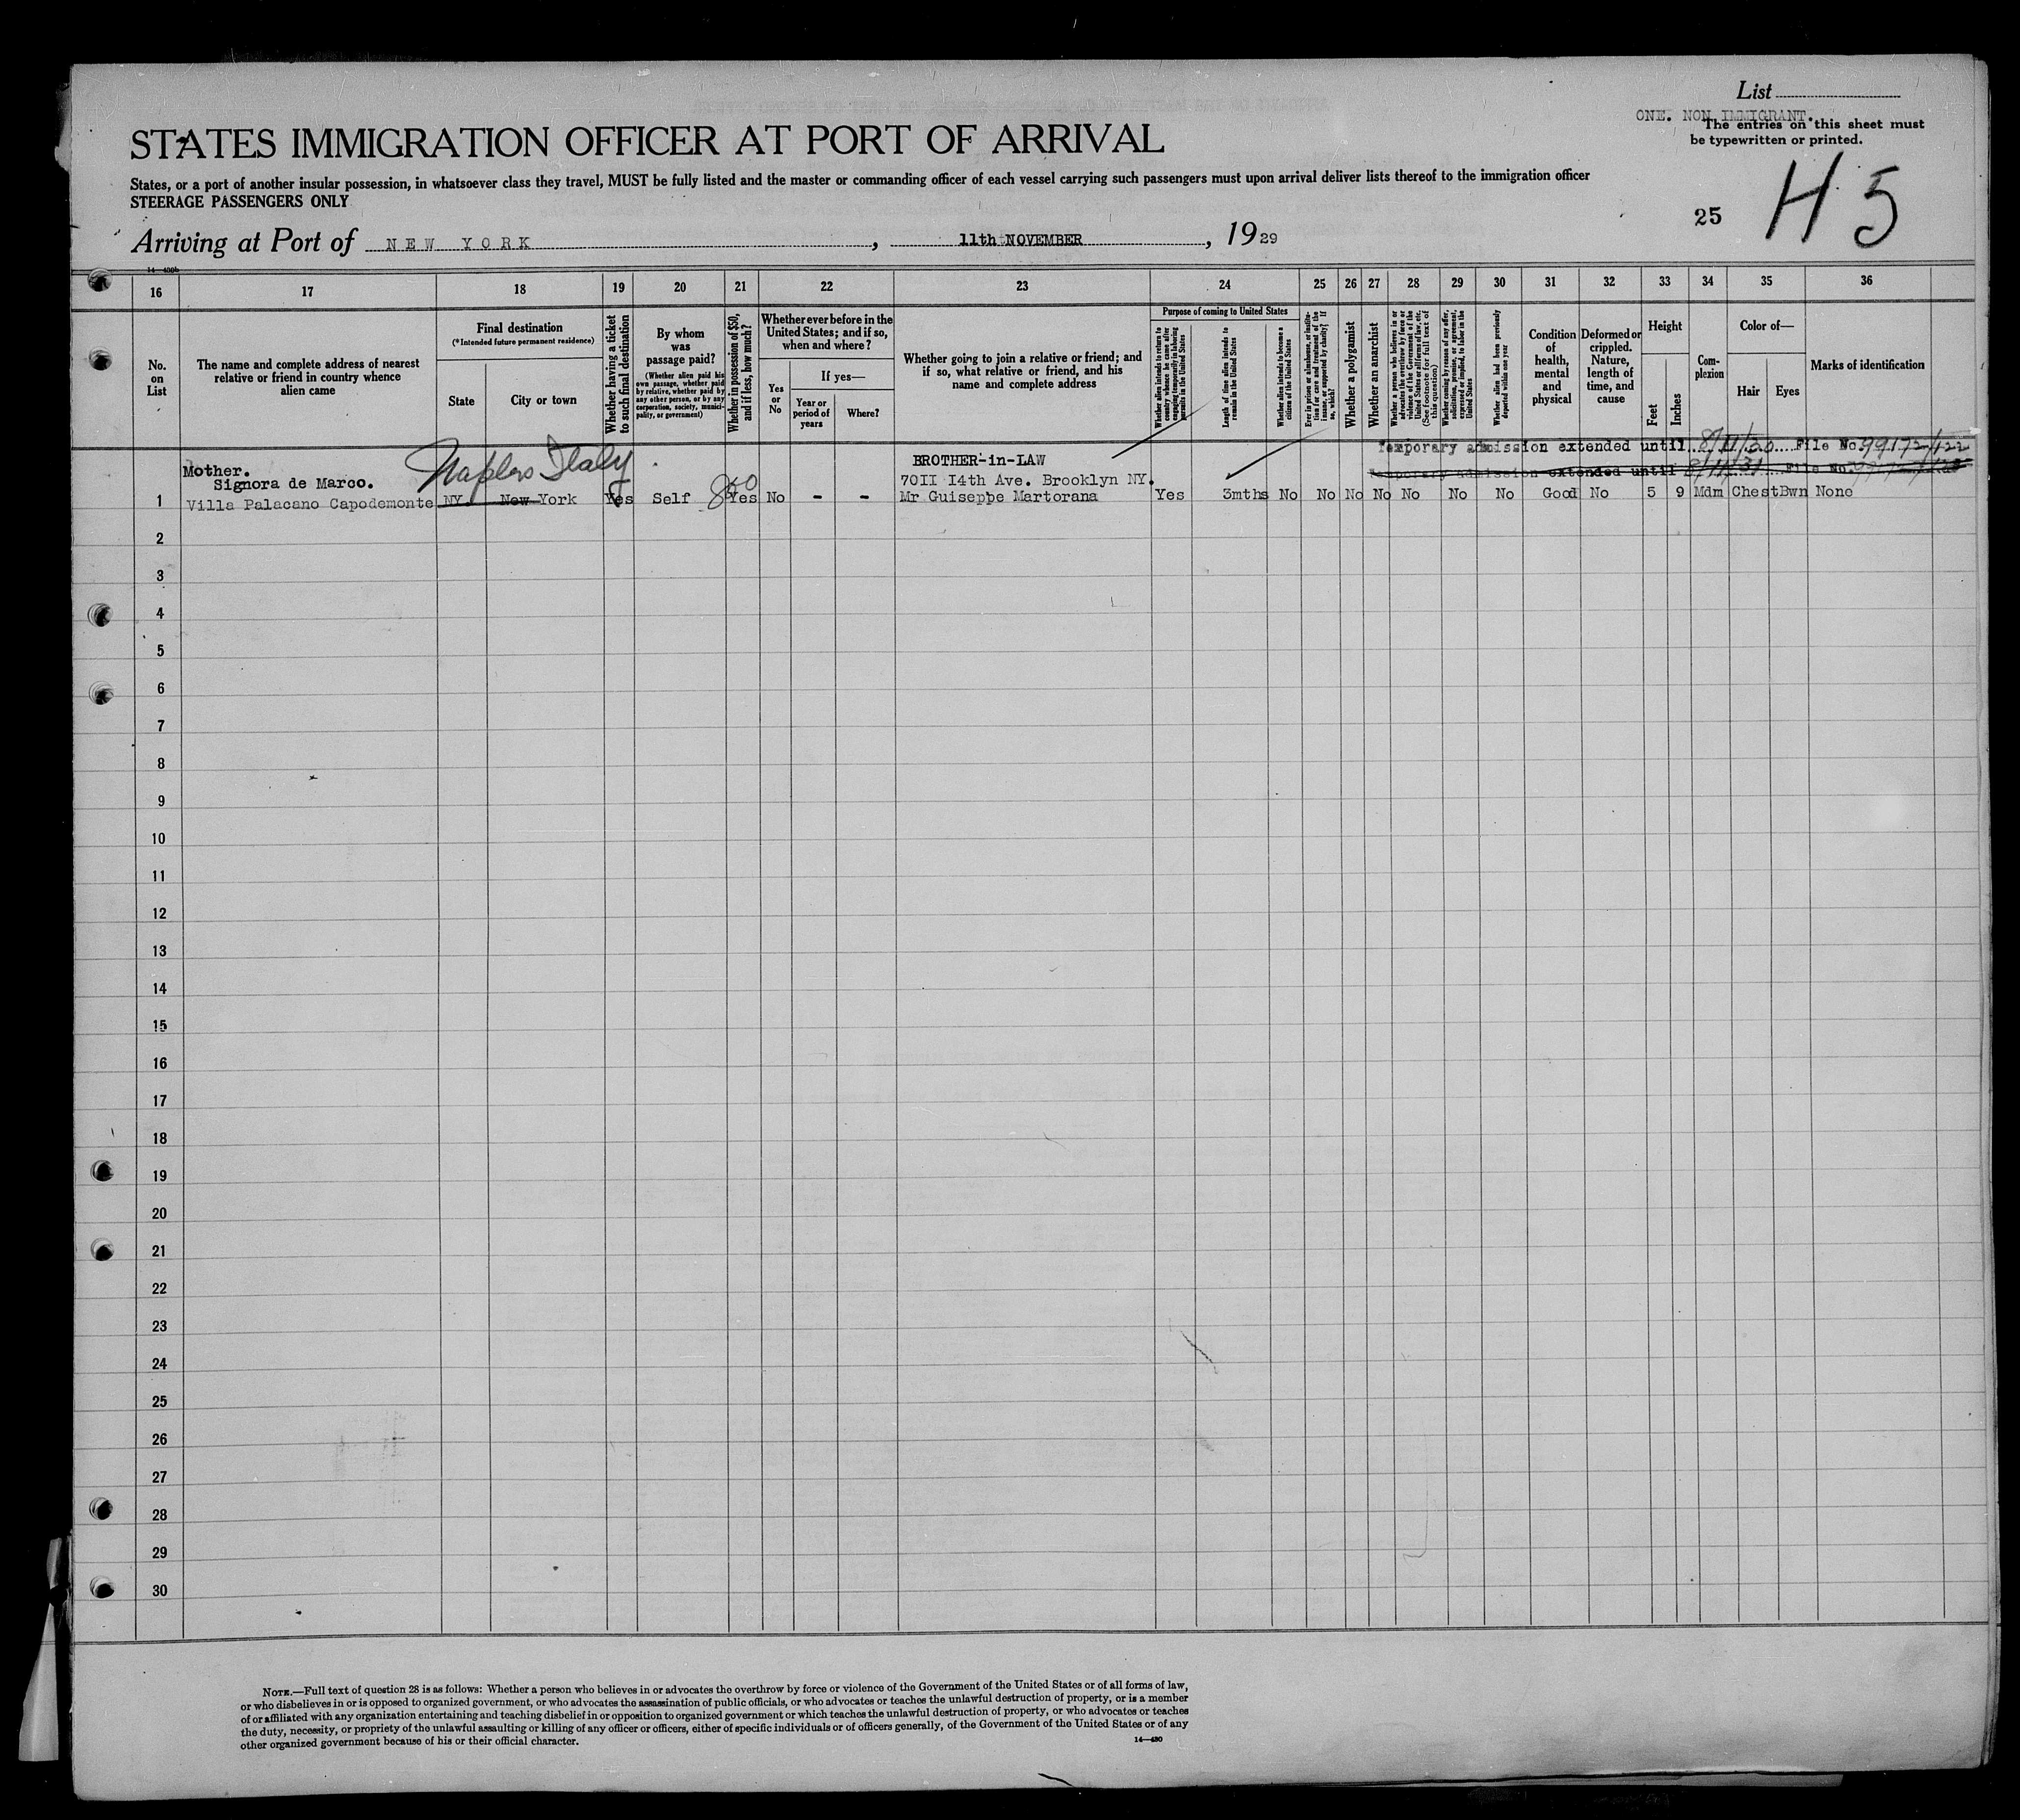 List
ONE. NON IMMIGRANT.
The entries on this sheet must
be typewritten or printed.
STATES IMMIGRATION OFFICER AT PORT OF ARRIVAL
States, or a port of another insular possession, in whatsoever class they travel, MUST be fully listed and the master or commanding officer of each vessel carrying such passengers must upon arrival deliver lists thereof to the immigration officer
STEERAGE PASSENGERS ONLY
25 H 5
Arriving at Port of NEW YORK, 11th NOVEMBER, 1929
14—480b
16 17 18 19 20 21 22 23 24 25 26 27 28 29 30 31 32 33 34 35 36
No. on List
The name and complete address of nearest relative or friend in country whence alien came
Final destination
(*Intended future permanent residence)
State
City or town
Whether having a ticket to such final destination
By whom was passage paid?
(Whether alien paid his own passage, whether paid by relative, whether paid by any other person, or by any corporation, society, municipality, or government)
Whether in possession of $50, and if less, how much?
Whether ever before in the United States; and if so, when and where?
Yes or No
If yes—
Year or period of years
Where?
Whether going to join a relative or friend; and if so, what relative or friend, and his name and complete address
Purpose of coming to United States
Whether alien intends to return to country whence he came after engaging temporarily in laboring pursuits in the United States
Length of time alien intends to remain in the United States
Whether alien intends to become a citizen of the United States
Ever in prison or almshouse, or institution for care and treatment of the insane, or supported by charity? If so, which?
Whether a polygamist
Whether an anarchist
Whether a person who believes in or advocates the overthrow by force or violence of the Government of the United States or all forms of law, etc. (See footnote for full text of this question)
Whether coming by reason of any offer, solicitation, promise, or agreement, expressed or implied, to labor in the United States
Whether alien had been previously deported within one year
Condition of health, mental and physical
Deformed or crippled. Nature, length of time, and cause
Height
Feet
Inches
Complexion
Color of—
Hair
Eyes
Marks of identification
Temporary admission extended until 8/11/30 File No. 99172/122
Temporary admission extended until 2/11/31 File No.
Mother.
Signora de Marco.
Naples Italy
BROTHER-in-LAW
7011 14th Ave. Brooklyn NY.
1 Villa Palacano Capodemonte NY New York Yes Self 860 Yes No - - Mr Guiseppe Martorana Yes 3mths No No No No No No No Good No 5 9 Mdm Chest Bwn None
2
3
4
5
6
7
8
9
10
11
12
13
14
15
16
17
18
19
20
21
22
23
24
25
26
27
28
29
30
NOTE.—Full text of question 28 is as follows: Whether a person who believes in or advocates the overthrow by force or violence of the Government of the United States or of all forms of law,
or who disbelieves in or is opposed to organized government, or who advocates the assassination of public officials, or who advocates or teaches the unlawful destruction of property, or is a member
of or affiliated with any organization entertaining and teaching disbelief in or opposition to organized government or which teaches the unlawful destruction of property, or who advocates or teaches
the duty, necessity, or propriety of the unlawful assaulting or killing of any officer or officers, either of specific individuals or of officers generally, of the Government of the United States or of any
other organized government because of his or their official character.
14—480